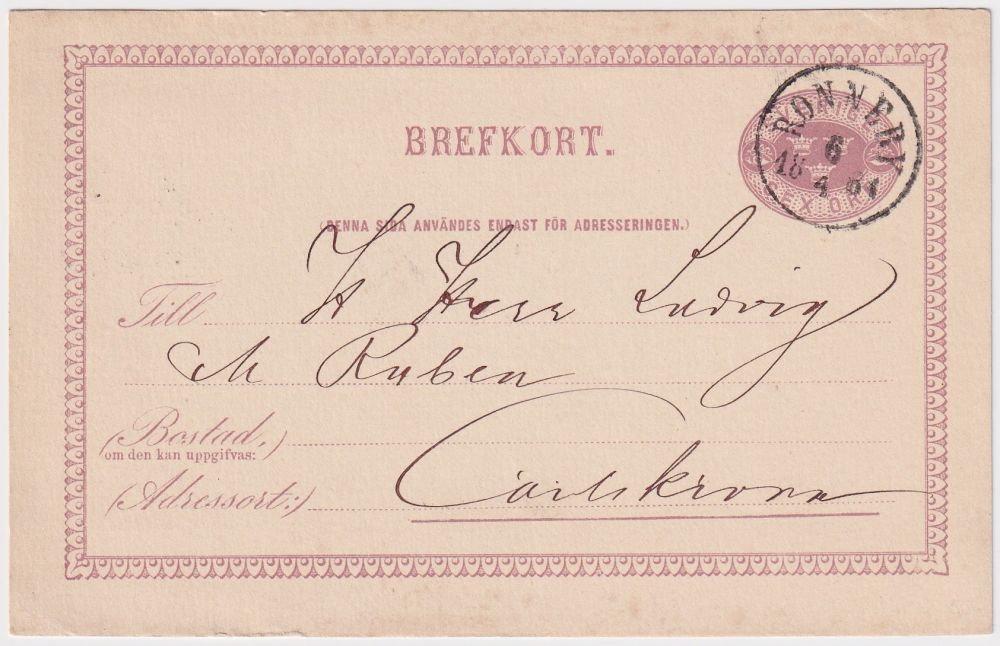 BREFKORT.
RONNEBY
6
18 4 87
SEX ÖRE
(DENNA SIDA ANVÄNDES ENDAST FÖR ADRESSERINGEN.)
Till H Herr Ludvig
M Ruben
(Bostad,)
om den kan uppgifvas:
(Adressort:) Carlskrona